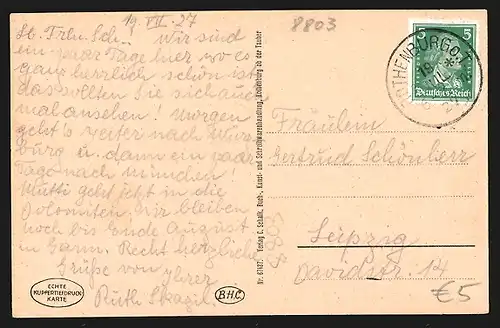 19. VII. 27
8803
Lb. Frln. Sch.! Wir sind
ein paar Tage hier, wo es
ganz herrlich schön ist
das sollten Sie sich auch
mal ansehen! Morgen
geht's weiter nach Würz-
burg u. dann ein paar
Tage nach München!
Mutti geht jetzt in die
Dolomiten, wir bleiben
noch bis Ende August
in Garm. Recht herzliche
Grüße von Ihrer
Ruth
ECHTE
KUPFERTIEFDRUCK
KARTE
B.H.C.
Nr. 61487. Verlag C. Schalk, Buch-, Kunst- und Schreibwarenhandlung, Rothenburg ob der Tauber
5 5
Deutsches Reich
ROTHENBURG O.T.
Fräulein
Gertrud Schönherr
Leipzig
Davidstr. 14
€5